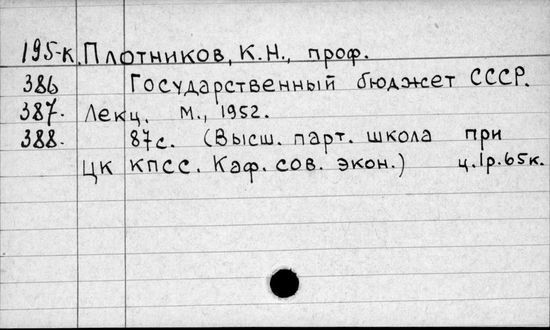 195-к. Плотников, К.Н., проф.
386 Государственный бюджет СССР.
387. Лекц. М., 1952.
388. 87с. (Высш. парт. школа при
ЦК КПСС. Каф. сов. экон.) ц.1р.65к.